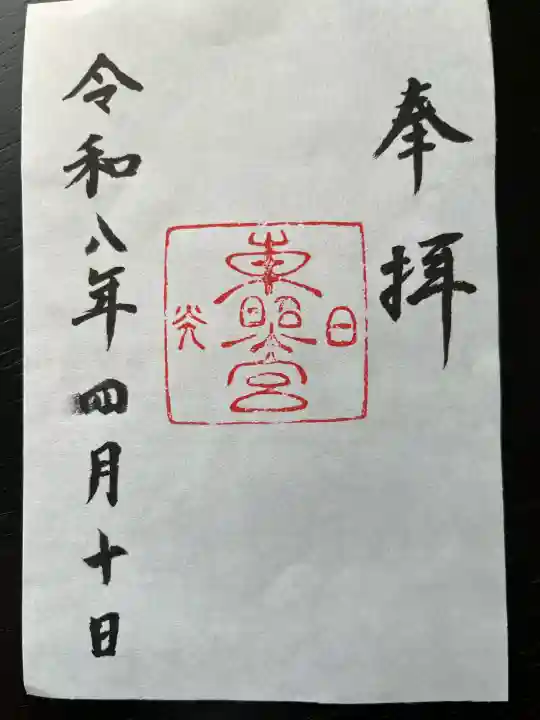 奉拝
東照宮
日
光
令和八年四月十日